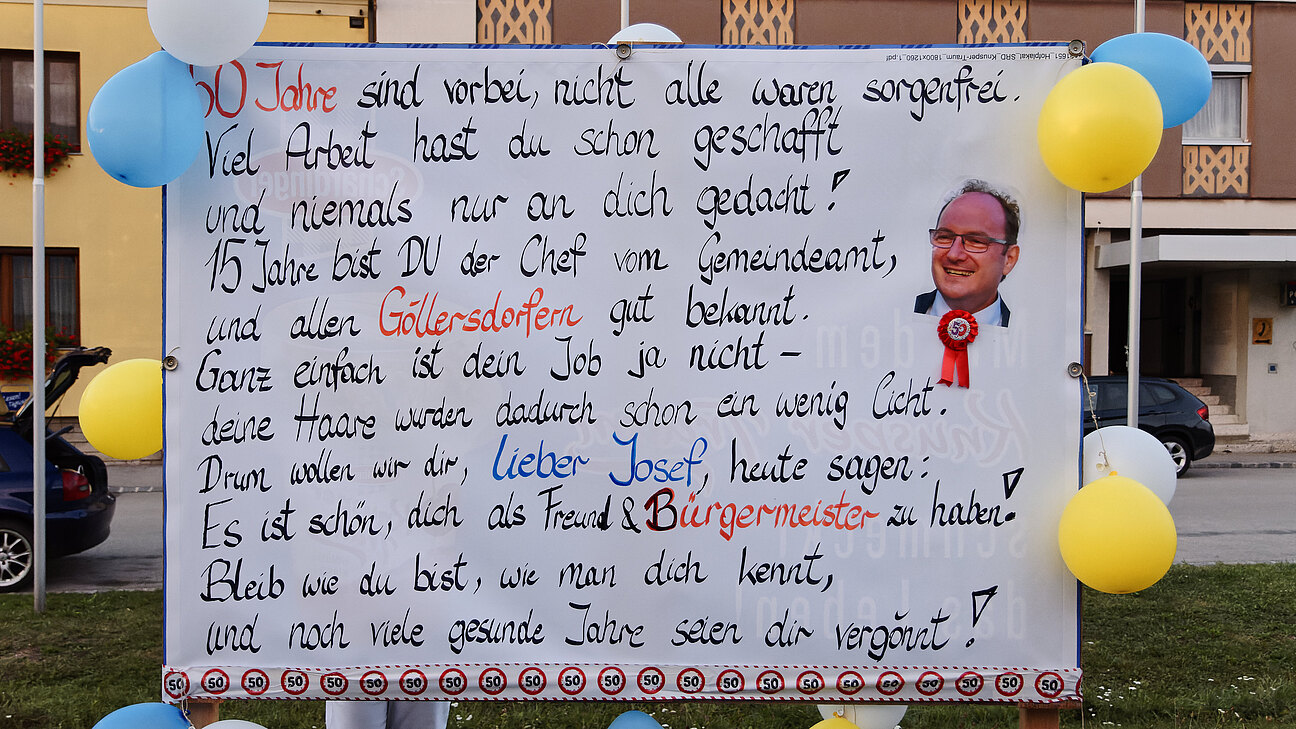 50 Jahre sind vorbei, nicht alle waren sorgenfrei.
Viel Arbeit hast du schon geschafft
und niemals nur an dich gedacht!
15 Jahre bist DU der Chef vom Gemeindeamt,
und allen Göllersdorfern gut bekannt.
Ganz einfach ist dein Job ja nicht –
deine Haare wurden dadurch schon ein wenig licht.
Drum wollen wir dir, lieber Josef, heute sagen:
Es ist schön, dich als Freund & Bürgermeister zu haben!
Bleib wie du bist, wie man dich kennt,
und noch viele gesunde Jahre seien dir vergönnt!
50
50 50 50 50 50 50 50 50 50 50 50 50 50 50 50 50 50 50 50 50 50 50 50